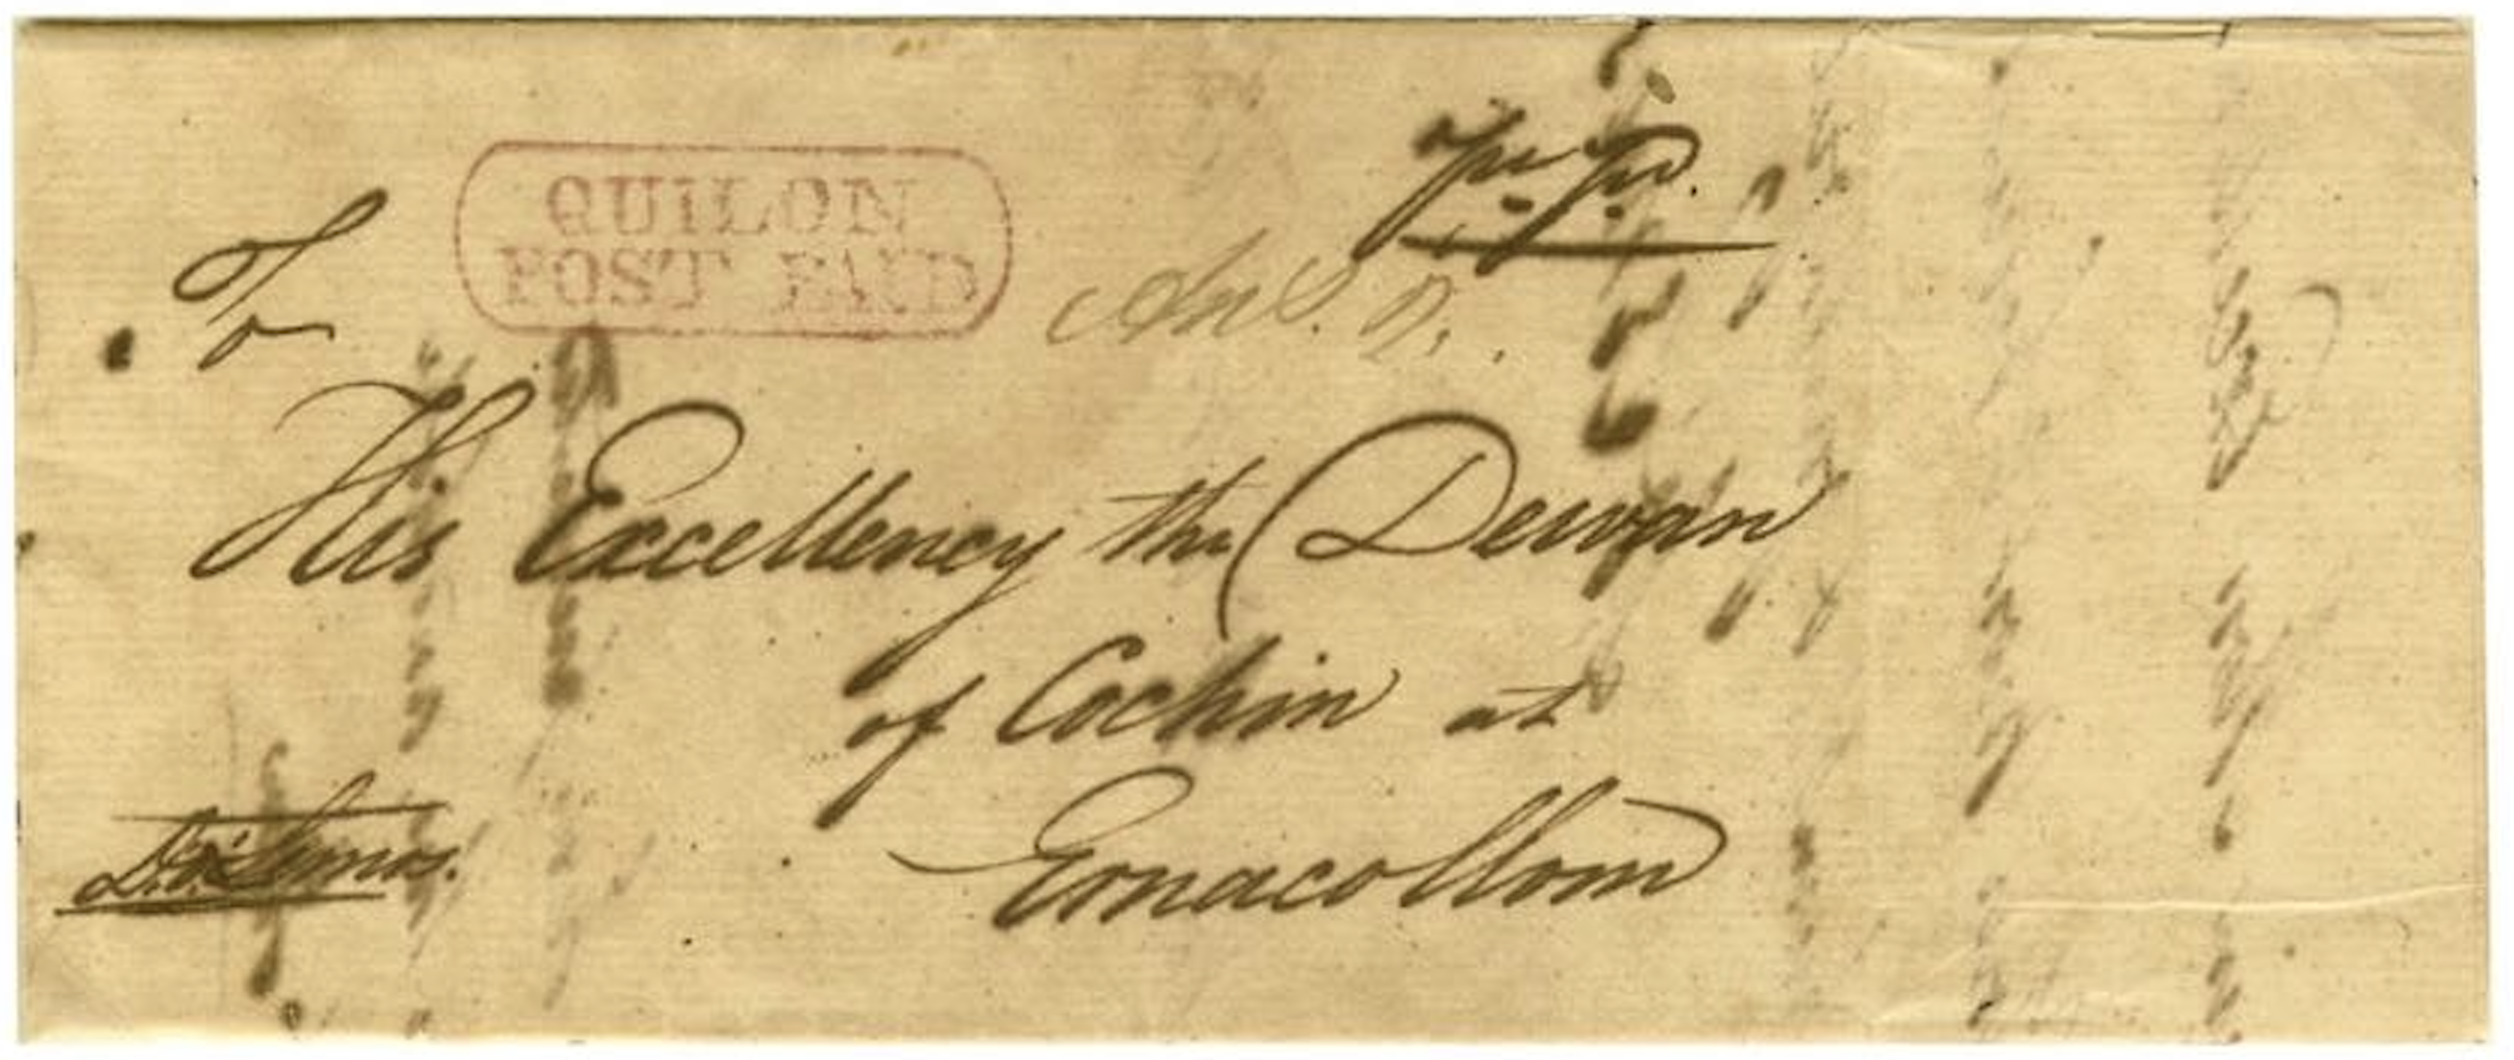 QUILON
POST PAID
To
His Excellency the Dewan
of Cochin at
Ernacollom